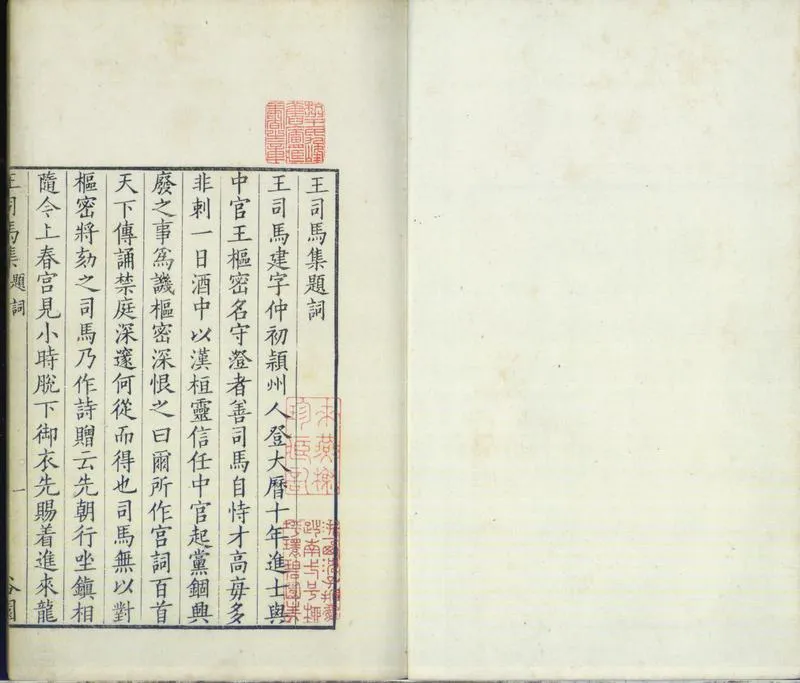 王司馬集題詞
王司馬建字仲初頴州人登大曆十年進士與
中官王樞密名守澄者善司馬自恃才高毎多
非刺一日酒中以漢桓靈信任中官起黨錮興
廢之事爲譏樞密深恨之曰爾所作宮詞百首
天下傳誦禁庭深邃何從而得也司馬無以對
樞密將劾之司馬乃作詩贈云先朝行坐鎮相
隨今上春宮見小時脫下御衣先賜着進來龍
王司馬集 題詞 一